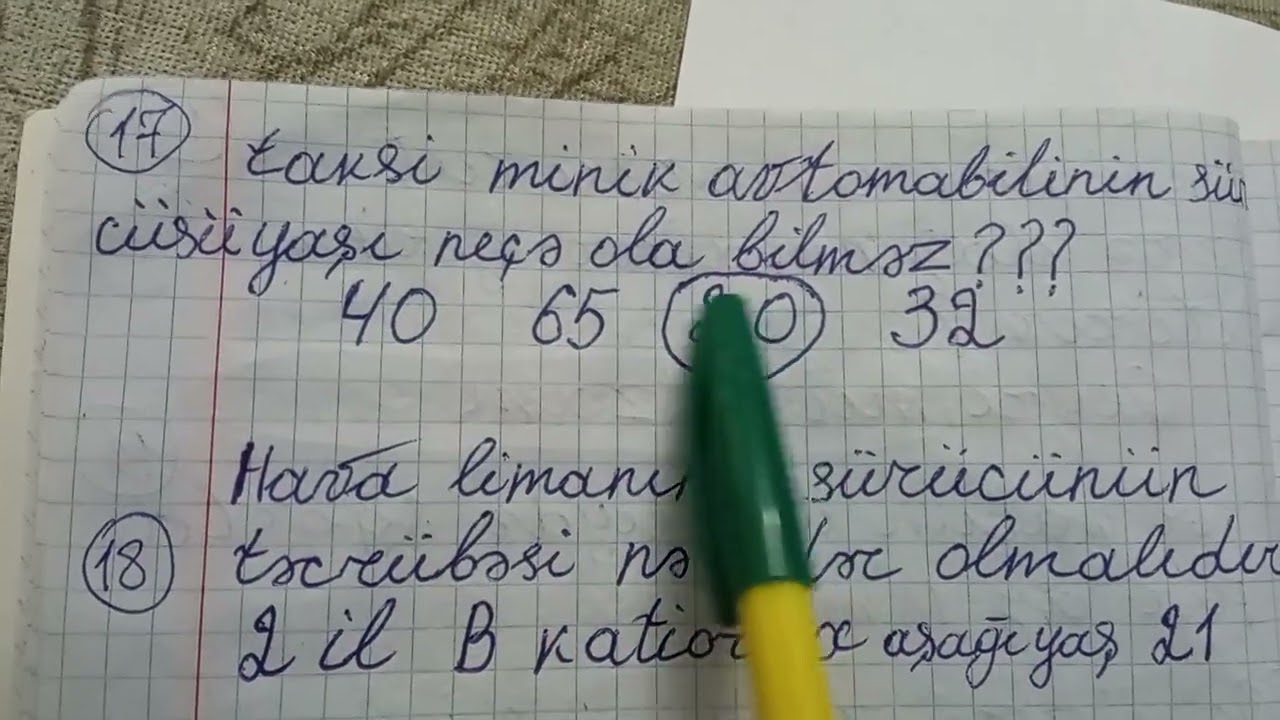 17 taksi minik avtomabilinin sür
cüsü yaşı neçə ola bilməz???
40 65 32
Hava sürücünün
18 təcrübəsi olmalıdır
2 il B aşağı yaş 21